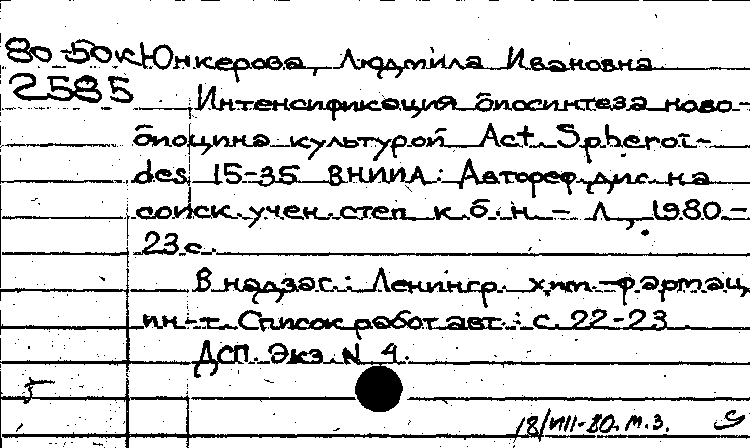 80-50к Юнкерова, Людмила Ивановна
2585
Интенсификация биосинтеза ново-
биоцина культурой Act. Spheroi-
des 15-35 ВНИИА: Автореф. дис. на
соиск. учен. степ. к. б. н. - Л., 1980.-
23 с.
В надзаг.: Ленингр. хим.-фармац.
ин-т. Список работ авт.: с. 22-23.
ДСП. Экз. N 4.
18/VIII-80. М.З.